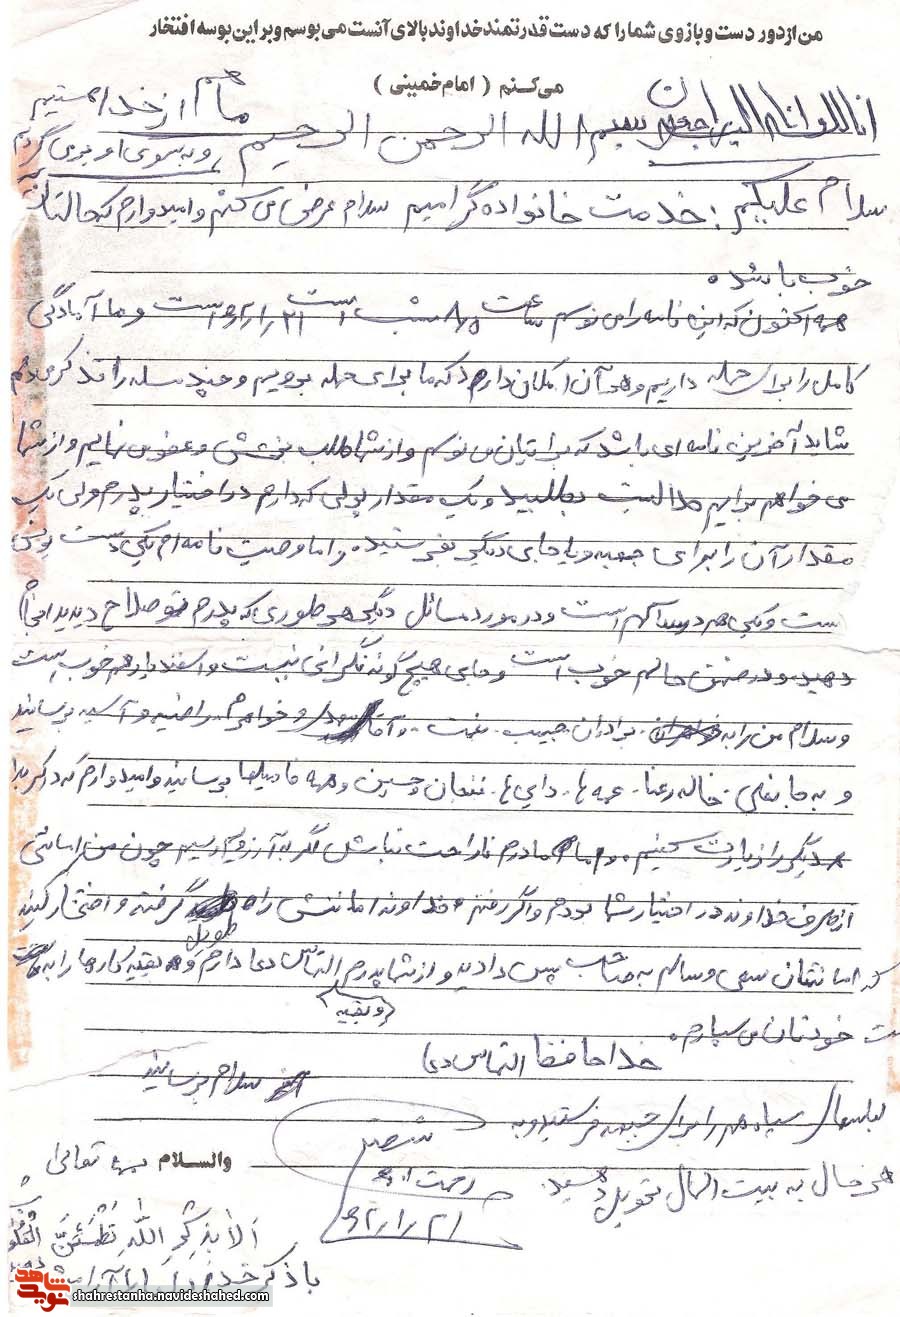 من از دور دست و بازوی شما را که دست قدرتمند خداوند بالای آنست می‌بوسم و بر این بوسه افتخار
می‌کنم (امام خمینی)
ما هم از خدا هستیم
و به سوی او بر می گردیم
انا لله و انا الیه راجعون بسم الله الرحمن الرحیم
سلام علیکم: خدمت خانواده گرامیم سلام عرض می کنم و امیدوارم که حالتان
خوب باشد.
هم اکنون که این نامه را می نویسم ساعت شب است است و ما آمادگی
کامل را برای حمله داریم و هر آن امکان دارد که ما برای حمله برویم و چند مسله را تذکر می دهم
شاید آخرین نامه ای باشد که برایتان می نویسم و از شما طلب بخشش و عفو می نمایم و از شما
می خواهم برایم حلالیت بطلبید و یک مقدار پولی که دارم در اختیار پدرم ولی یک
مقدار آن را برای جبهه و یا جای دیگر بفرستید. و اما وصیت نامه ام یکی دست
است و یکی هم در ساکم است و در مورد مسائل دیگر هر طوری که پدرم تو صلاح دیدید انجام
دهید و در ضمن حالم خوب است و جای هیچ گونه نگرانی نیست و اسفندیار هم خوب است
و سلام من را به برادران حبیب و خواهرم راضیه و آسیه برسانید
و به خاله رعنا عمه ها دایی ها و حسین و همه فامیلها برسانید و امیدوارم که در کربلا
همدیگر را زیارت کنیم. و اما مادرم ناراحت نباش اگر به آرزویم رسیدم چون من امانتی
از طرف خداوند در اختیار شما بودم و اگر رفتم خداوند امانتش را گرفته و افتخار کنید
تحویل
که امانتتان سعی و سالم به صاحب پس دادید و از شما پدرم التماس دعا دارم و بقیه کارها را به
خودتان می سپارم.
(و بقیه)
خداحافظ التماس دعا
سلام برسانید
لباسهای سیاه هم را برای جبهه فرستید و به
هر حال به بیت المال تحویل دهید.
والسلام
بسمه تعالی
رحمت
۶۲/۱/۲۱
الا بذکر الله تطمئن القلوب
با ذکر خدا آرام
نوید شاهد
shahrestanha.navideshahed.com